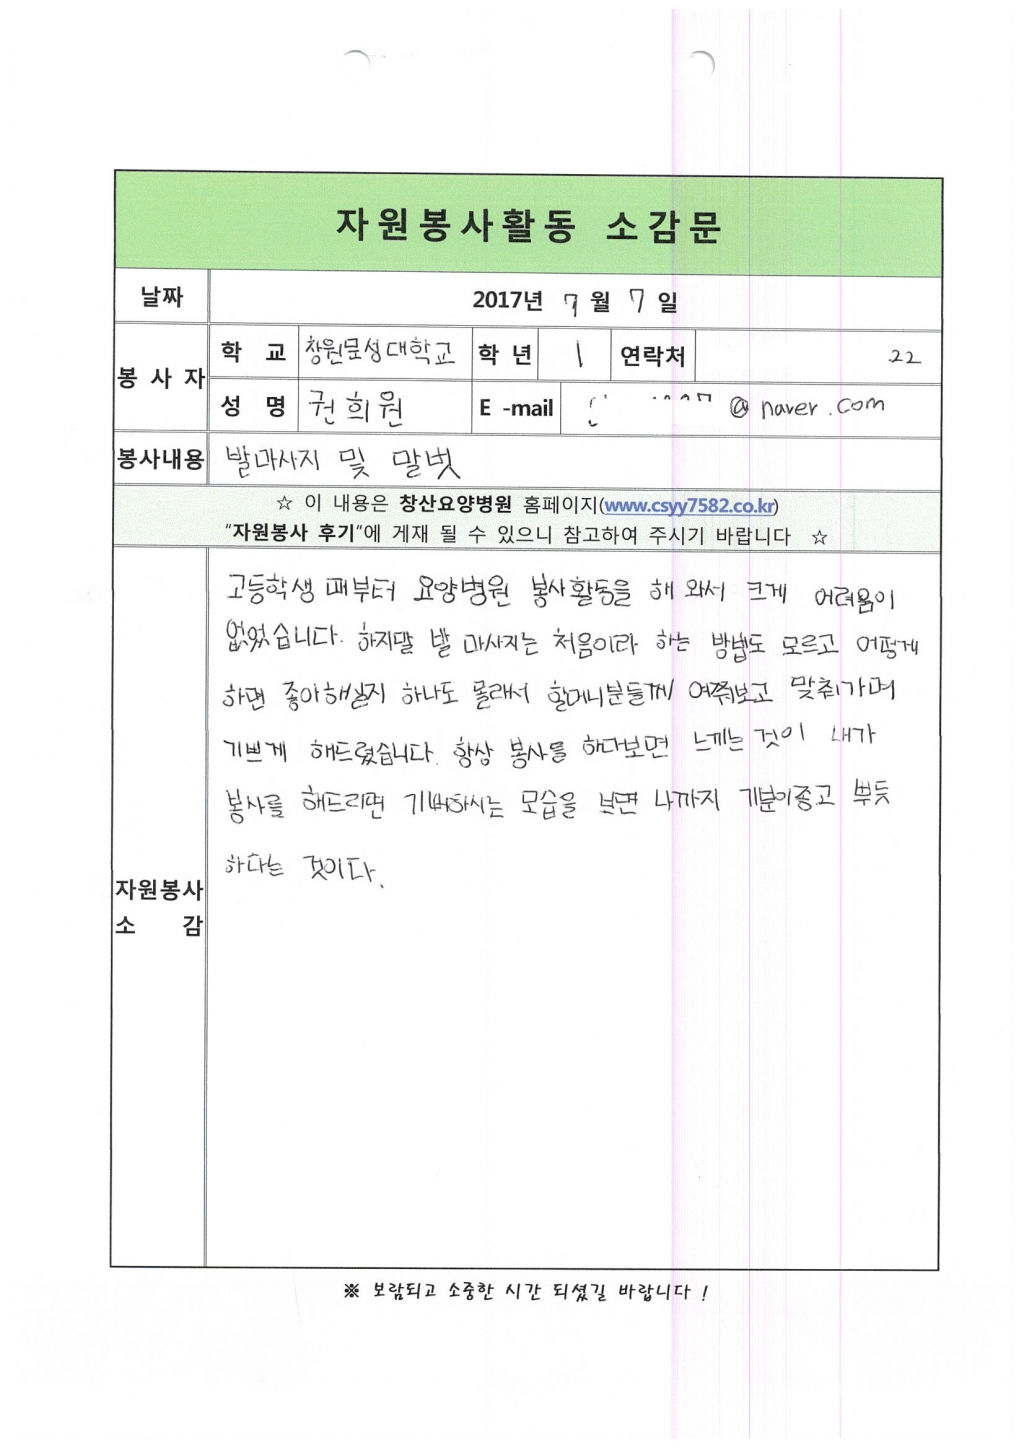 자원봉사활동 소감문
날짜 2017년 7월 7일
봉사자 학교 창원문성대학교 학년 1 연락처 22
성명 권희원 E-mail @naver.com
봉사내용 발마사지 및 말벗
☆ 이 내용은 창산요양병원 홈페이지(www.csyy7582.co.kr)
"자원봉사 후기"에 게재 될 수 있으니 참고하여 주시기 바랍니다 ☆
자원봉사
소감
고등학생 때부터 요양병원 봉사활동을 해 와서 크게 어려움이
없었습니다. 하지말 발 마사지는 처음이라 하는 방법도 모르고 어떻게
하면 좋아해실지 하나도 몰래서 할머니분들께 여쭤보고 맞춰가며
기쁘게 해드렸습니다. 항상 봉사를 하다보면 느끼는 것이 내가
봉사를 해드리면 기뻐하시는 모습을 보면 나까지 기분이좋고 뿌듯
하다는 것이다.
※ 보람되고 소중한 시간 되셨길 바랍니다 !